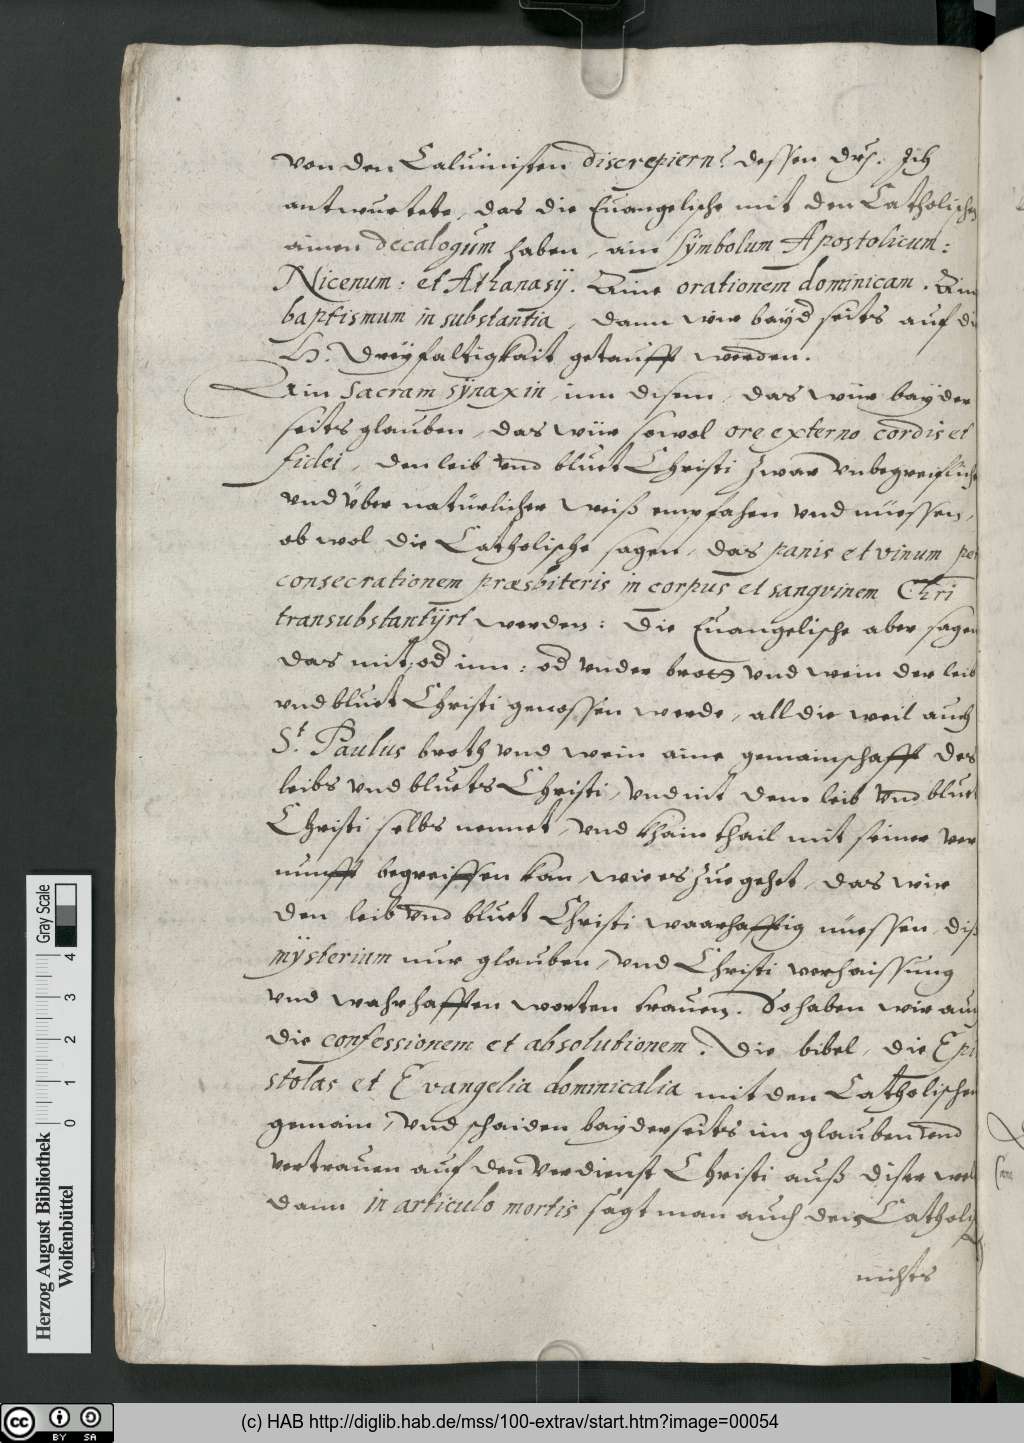 von den Caluinisten discrepiern? dessen Drh. Ich
antwurtete, das die Euangelische mit den Catholischen
ainen decalogum haben, ain symbolum Apostolicum:
Nicenum: et Athanasÿ. Aine orationem dominicam. Ain
baptismum in substantia, dann wür bayd seits auf die
H. Dreyfaltigkait getaufft werden.
Ain sacram sÿnaxin, inn disem, das wür bayder
seits glauben, das wür sowol ore externo cordis et
fidei, den leib vnd bluet Christi zwar vnbegreiflich
vnd über natürlicher weiß empfahen vnd nüessen,
ob wol die Catholische sagen, das panis et vinum per
consecrationem præsbiteris in corpus et sangvinem Chri
transubstantÿrt werden: Die Euangelische aber sagen
das mit, od inn: od vnder brott vnd wein der leib
vnd bluet Christi genossen werde, all die weil auch
St. Paulus broth vnd wein aine gemainschafft des
leibs vnd bluets Christi, vnd mit dem leib vnd bluet
Christi selbs nennet, vnd khain thail mit seiner ver
nunfft begreiffen kan, wie es zue gehet, das wir
den leib vnd bluet Christi waarhafftig nüessen, diß
mÿsterium nur glauben, vnd Christi verhaissung
vnd wahrhafften worten trauen. So haben wir auch
die confessionem et absolutionem. Die bibel, die Epi
stolas et Evangelia dominicalia mit den Catholischen
gemain, vnd schaiden bayderseits im glauben vnd
vertrauen auf den verdienst Christi auß diser welt
dann in articulo mortis sagt man auch den Catholisch
nichts
Herzog August Bibliothek
Wolfenbüttel
0 1 2 3 4
Gray Scale
(c) HAB http://diglib.hab.de/mss/100-extrav/start.htm?image=00054
cc BY SA